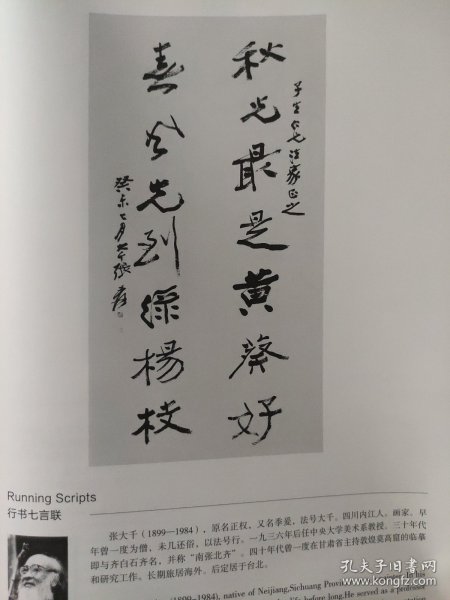 法家正之
秋光最是黄葵好
先到綠楊枝
癸未七月大千張爰
Running Scripts
行书七言联
张大千（1899—1984），原名正权，又名季爰，法号大千。四川内江人。画家。早
年曾一度为僧，未几还俗，以法号行。一九三六年后任中央大学美术系教授。三十年代
即与齐白石齐名，并称“南张北齐”。四十年代曾一度在甘肃省主持敦煌莫高窟的临摹
和研究工作。长期旅居海外。后定居于台北。
(1899–1984), native of Neijiang, Sichuan
before long. He served as a professor
孔夫子旧书网
www.kongfz.com